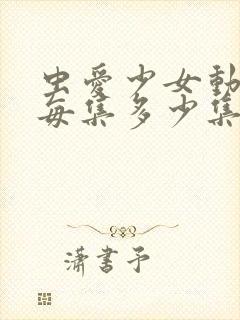 虫爱少女动
每集多少集
潇书予